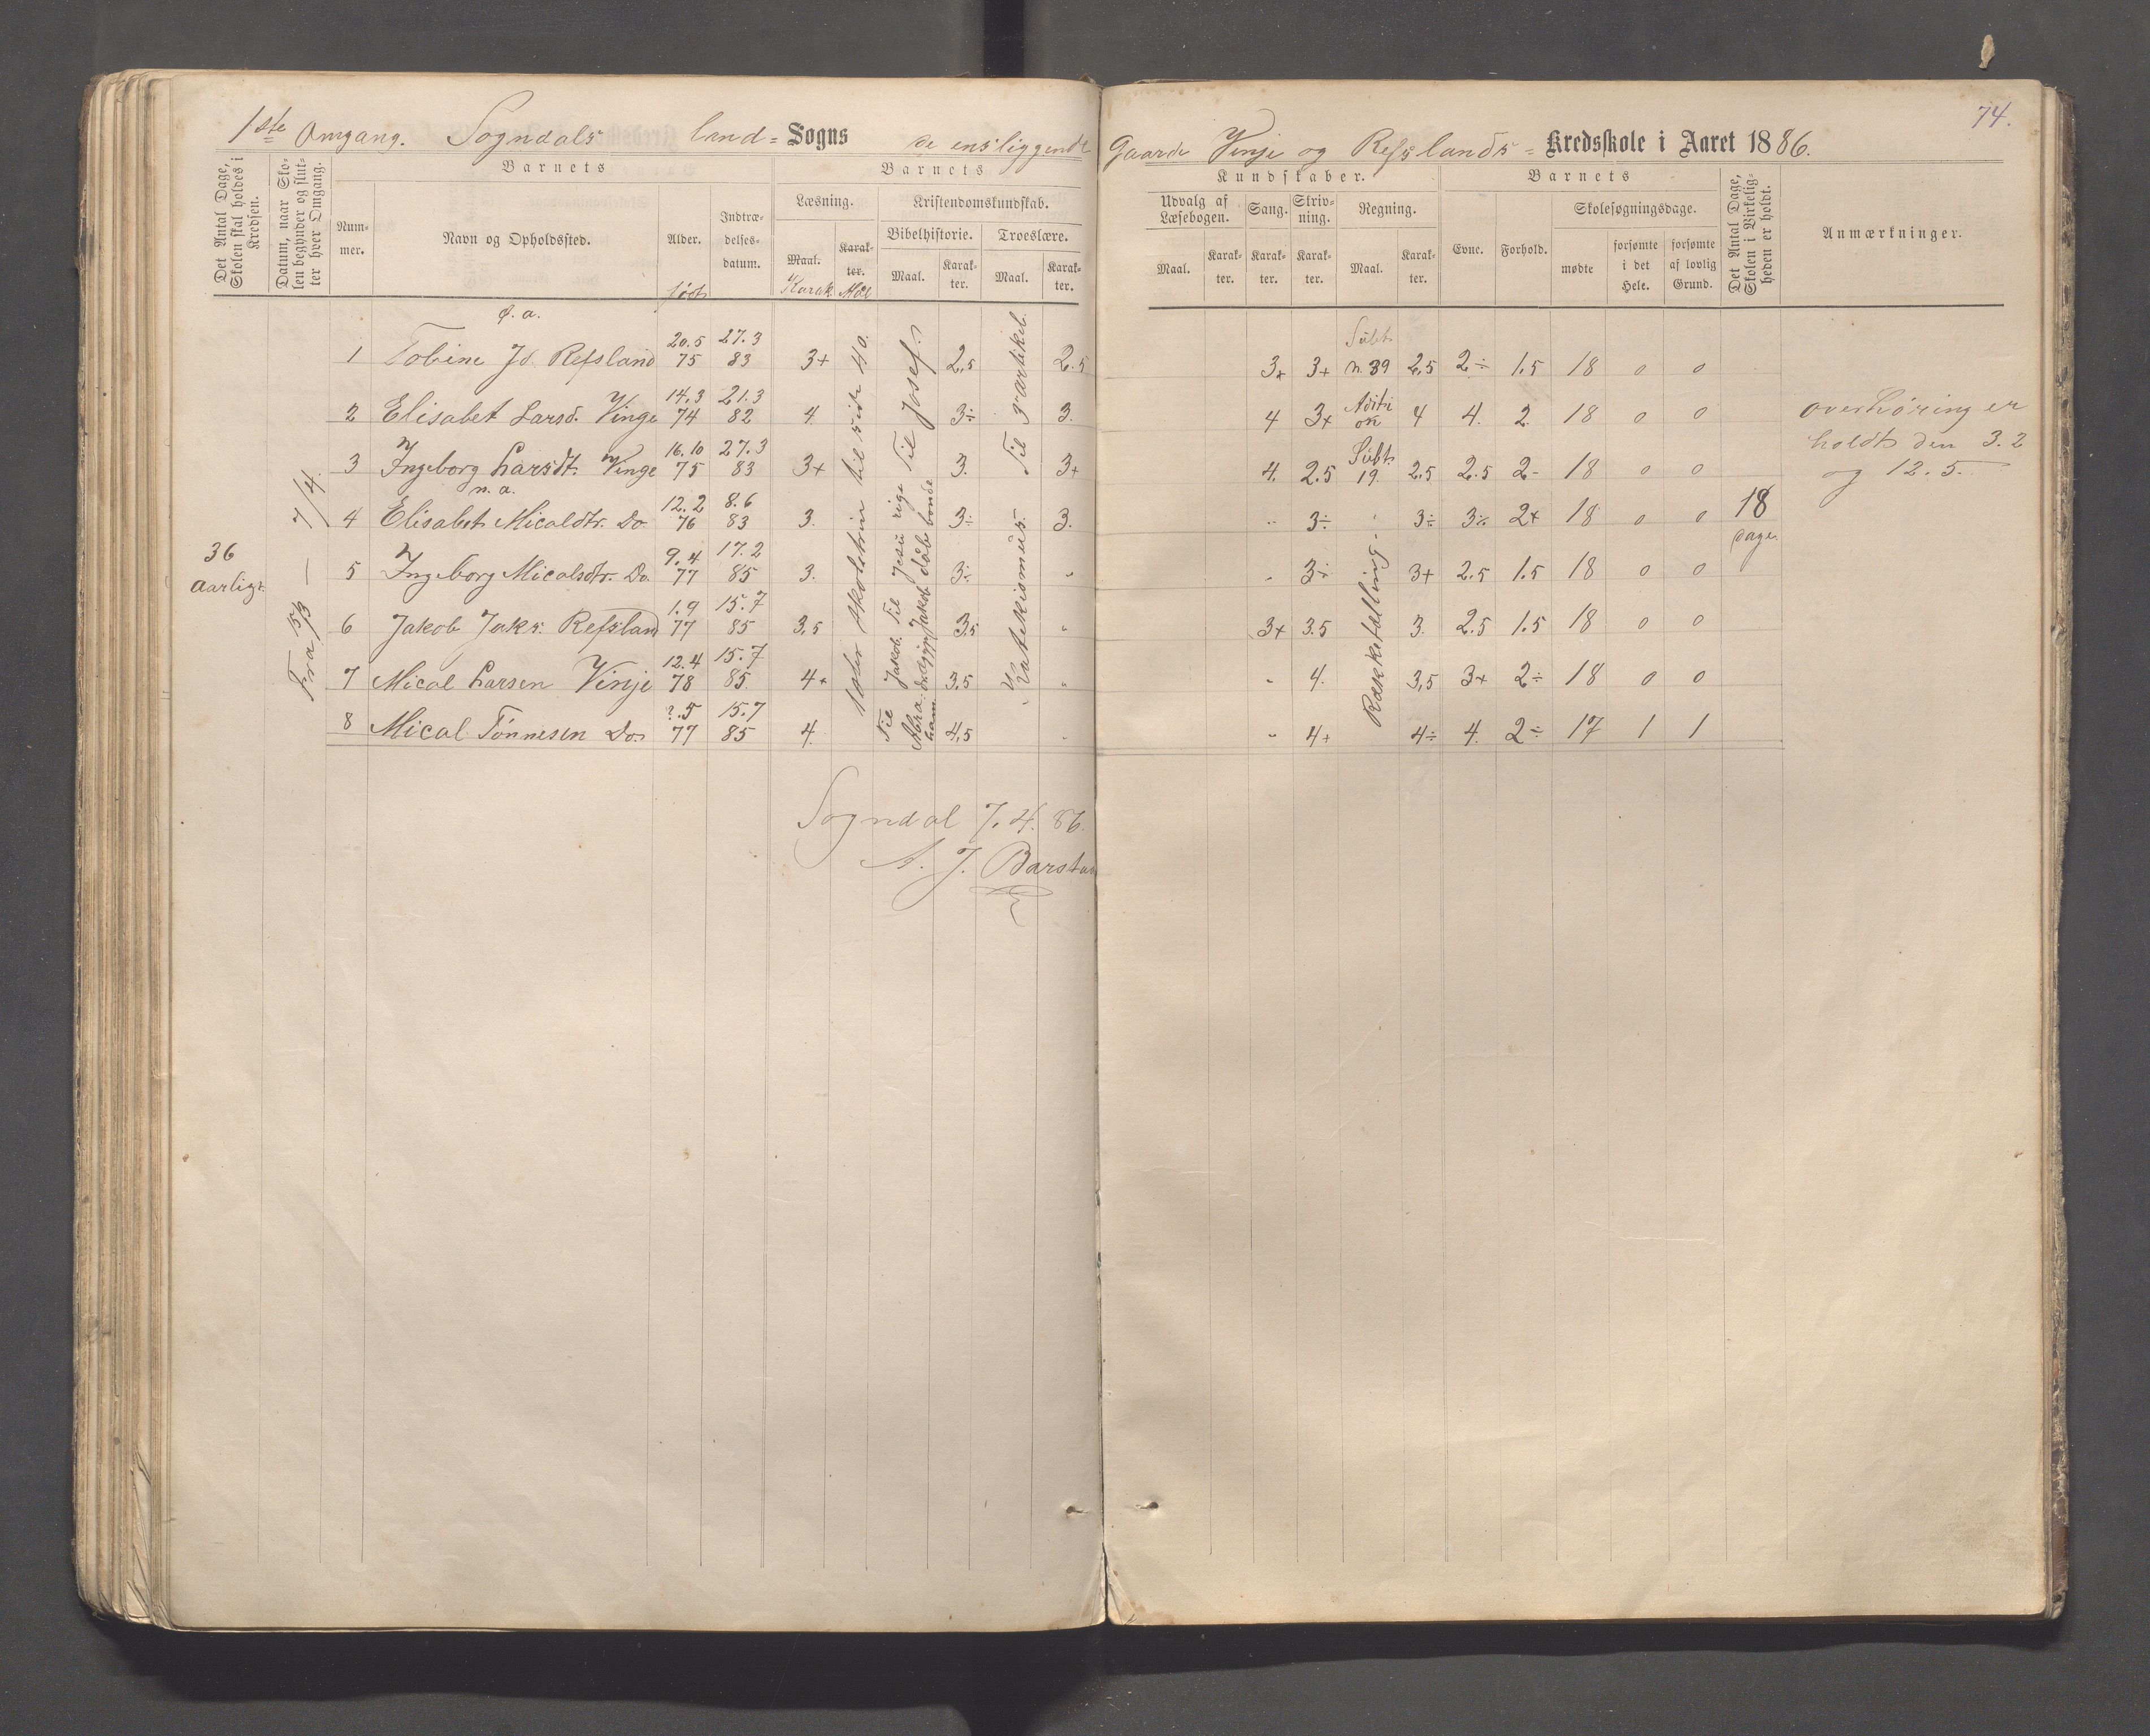 74.
1ste Omgang. Sogndals land = Sogns de ensliggende Gaarde Vinje og Refslands = Kredsskole i Aaret 1886.
Det Antal Dage, Skolen skal holdes i Kredsen.
Datum, naar Skolen begynder og slutter hver Omgang.
Barnets
Nummer.
Navn og Opholdssted.
Alder.
født
Indtrædelsesdatum.
Barnets
Læsning.
Maal.
Karak.
Karakter.
Mål
Kristendomskundskab.
Bibelhistorie.
Maal.
Karakter.
Troeslære.
Maal.
Karakter.
Kundskaber.
Udvalg af Læsebogen.
Maal.
Karakter.
Sang.
Karakter.
Skrivning.
Karakter.
Regning.
Maal.
Karakter.
Barnets
Evne.
Forhold.
Skolesøgningsdage.
mødte
forsømte i det Hele.
forsømte af lovlig Grund.
Det Antal Dage, Skolen i Virkeligheden er holdt.
Anmærkninger.
36 aarligt.
Fra 15/3 — 7/4.
ø. a.
1 Tobine Jd. Refsland 20.5 75 27.3 83 3+ 2,5 2.5 3+ 3+ Subt. n. 39 2,5 2÷ 1.5 18 0 0
2 Elisabet Larsd. Vinge 14.3 74 21.3 82 4 3÷ 3. 4 3+ Aditi on 4 4. 2. 18 0 0
3 Ingeborg Larsdt. Vinge 16.10 75 27.3 83 3+ 3. 3+ 4. 2.5 Subt. 19. 2.5 2.5 2- 18 0 0
n. a.
4 Elisabet Micaldtr. Do. 12.2 76 8.6 83 3. 3÷ 3. " 3÷ 3÷ 3÷ 2+ 18 0 0
5 Ingeborg Micalsdtr. Do. 9.4 77 17.2 85 3. 3÷ " " 3÷ 3+ 2.5 1.5 18 0 0
6 Jakob Jaks. Refsland 1.9 77 15.7 85 3,5 3.5 " 3+ 3.5 3. 2.5 1.5 18 0 0
7 Mical Larsen Vinje 12.4 78 15.7 85. 4+ 3,5 " " 4. 3,5 3+ 2÷ 18 0 0
8 Mical Tönnesen Do. ?.5 77 15.7 85 4. 4,5 " " 4+ 4÷ 4. 2÷ 17 1 1
1ste skoletrin til side 40.
Til Josef.
Til Jesu rige
Til Jakob.
Jakob dåb
Til Abraham
Til 3 artikel.
Katekismus.
Rækketælling.
18 dage.
overhøring er
holdt den 3.2
og 12.5.
Sogndal 7.4.86.
A. J. Barstad